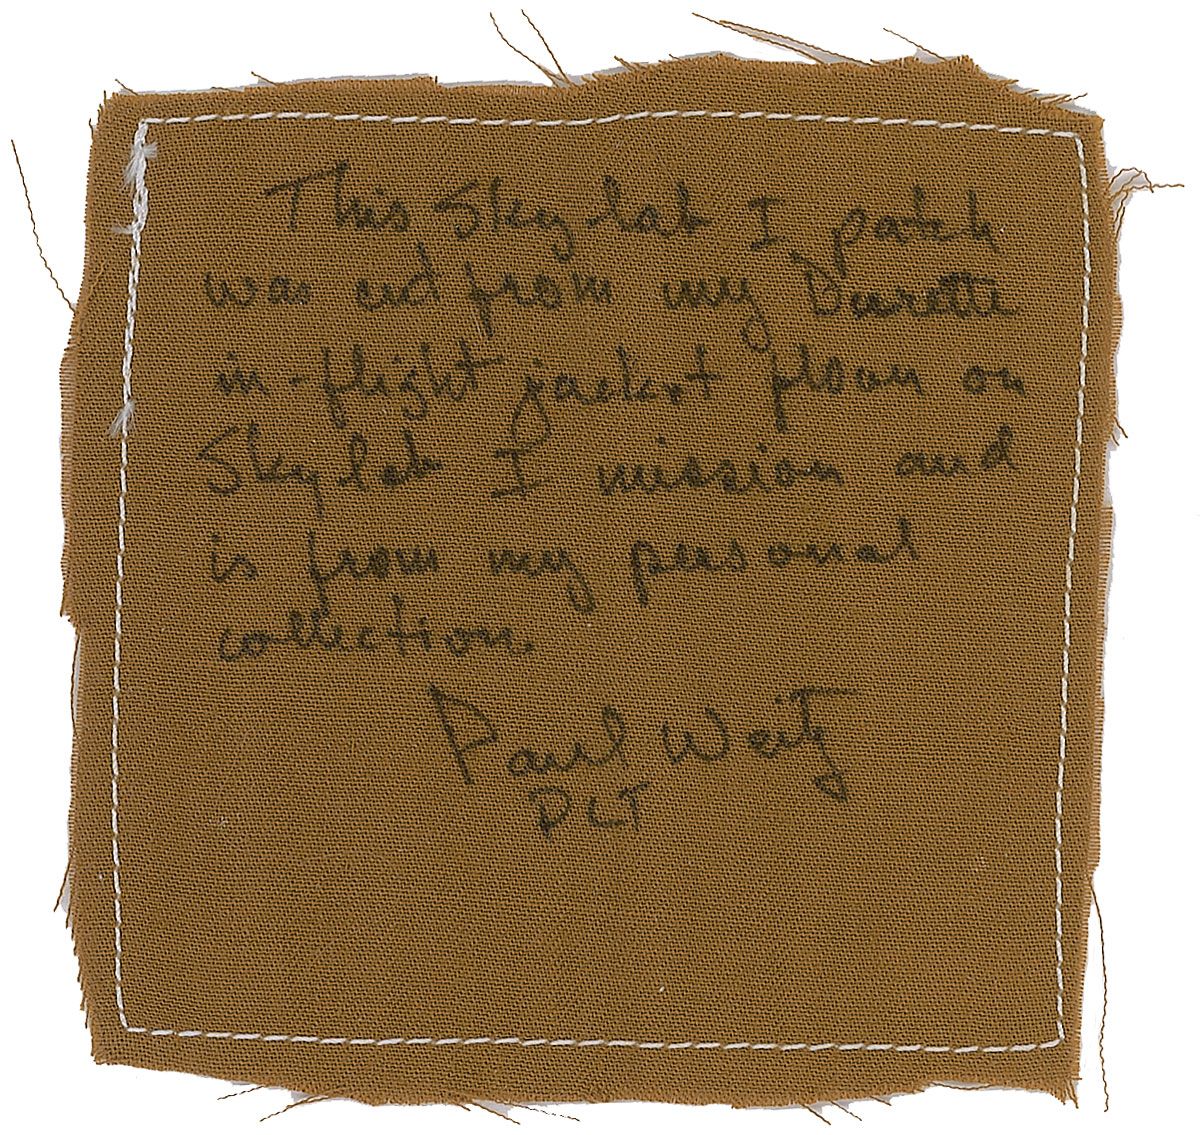 This Skylab I patch
was cut from my Durette
in-flight jacket flown on
Skylab I mission and
is from my personal
collection.
Paul Weitz
PLT